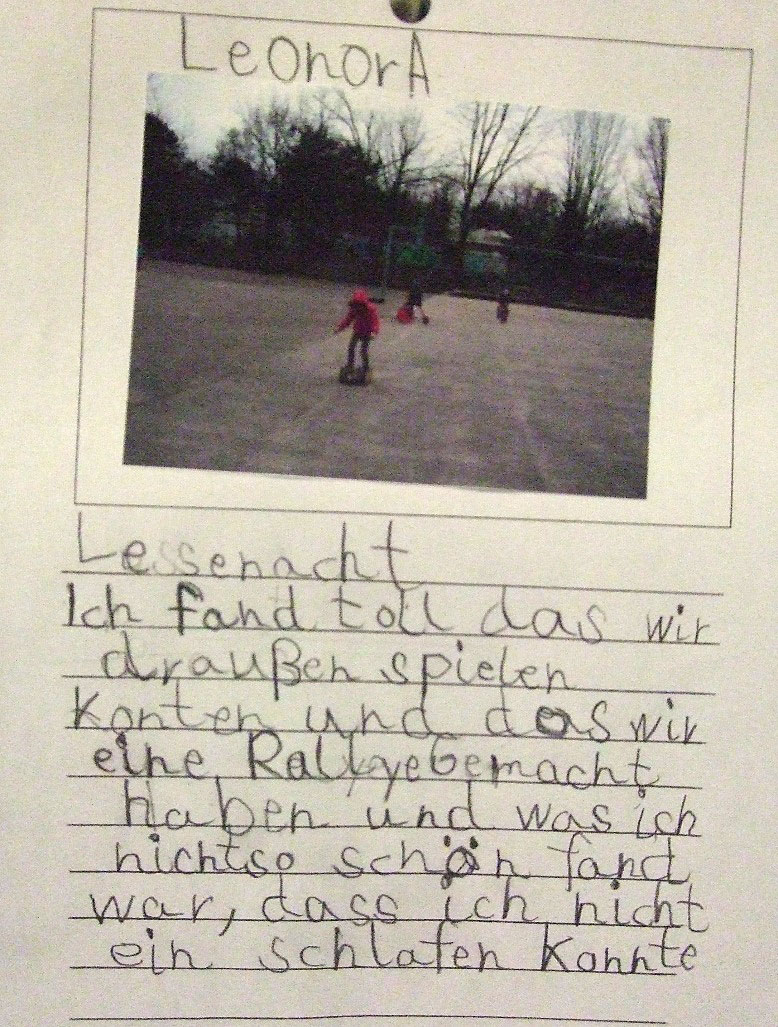 LeonorA
Lessenacht
Ich fand toll das wir
draußen spielen
Konten und das wir
eine Rallye Gemacht
Haben und was ich
nicht so schön fand
war, dass ich nicht
ein schlafen Konnte